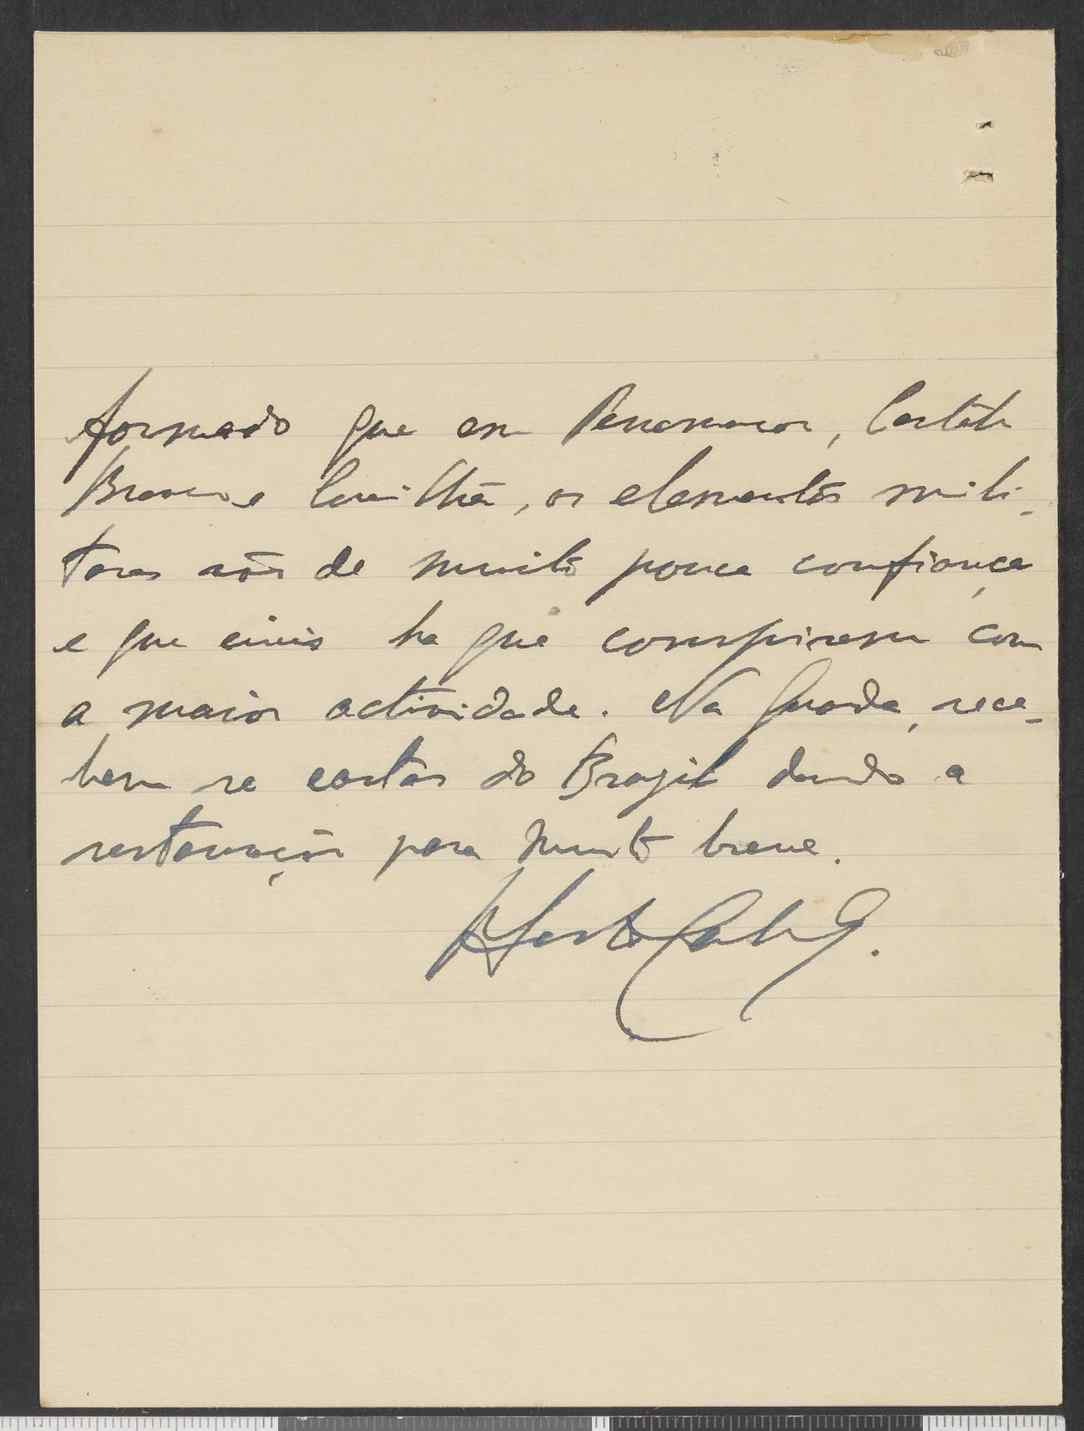 formado que em Penamacor, Castélo
Branco e Covilhã, os elementos mili-
tares são de muito pouca confiança
e que civis ha que conspiram com
a maior actividade. Na Guarda, rece-
bem se cartas do Brazil dando a
restauração para muito breve.